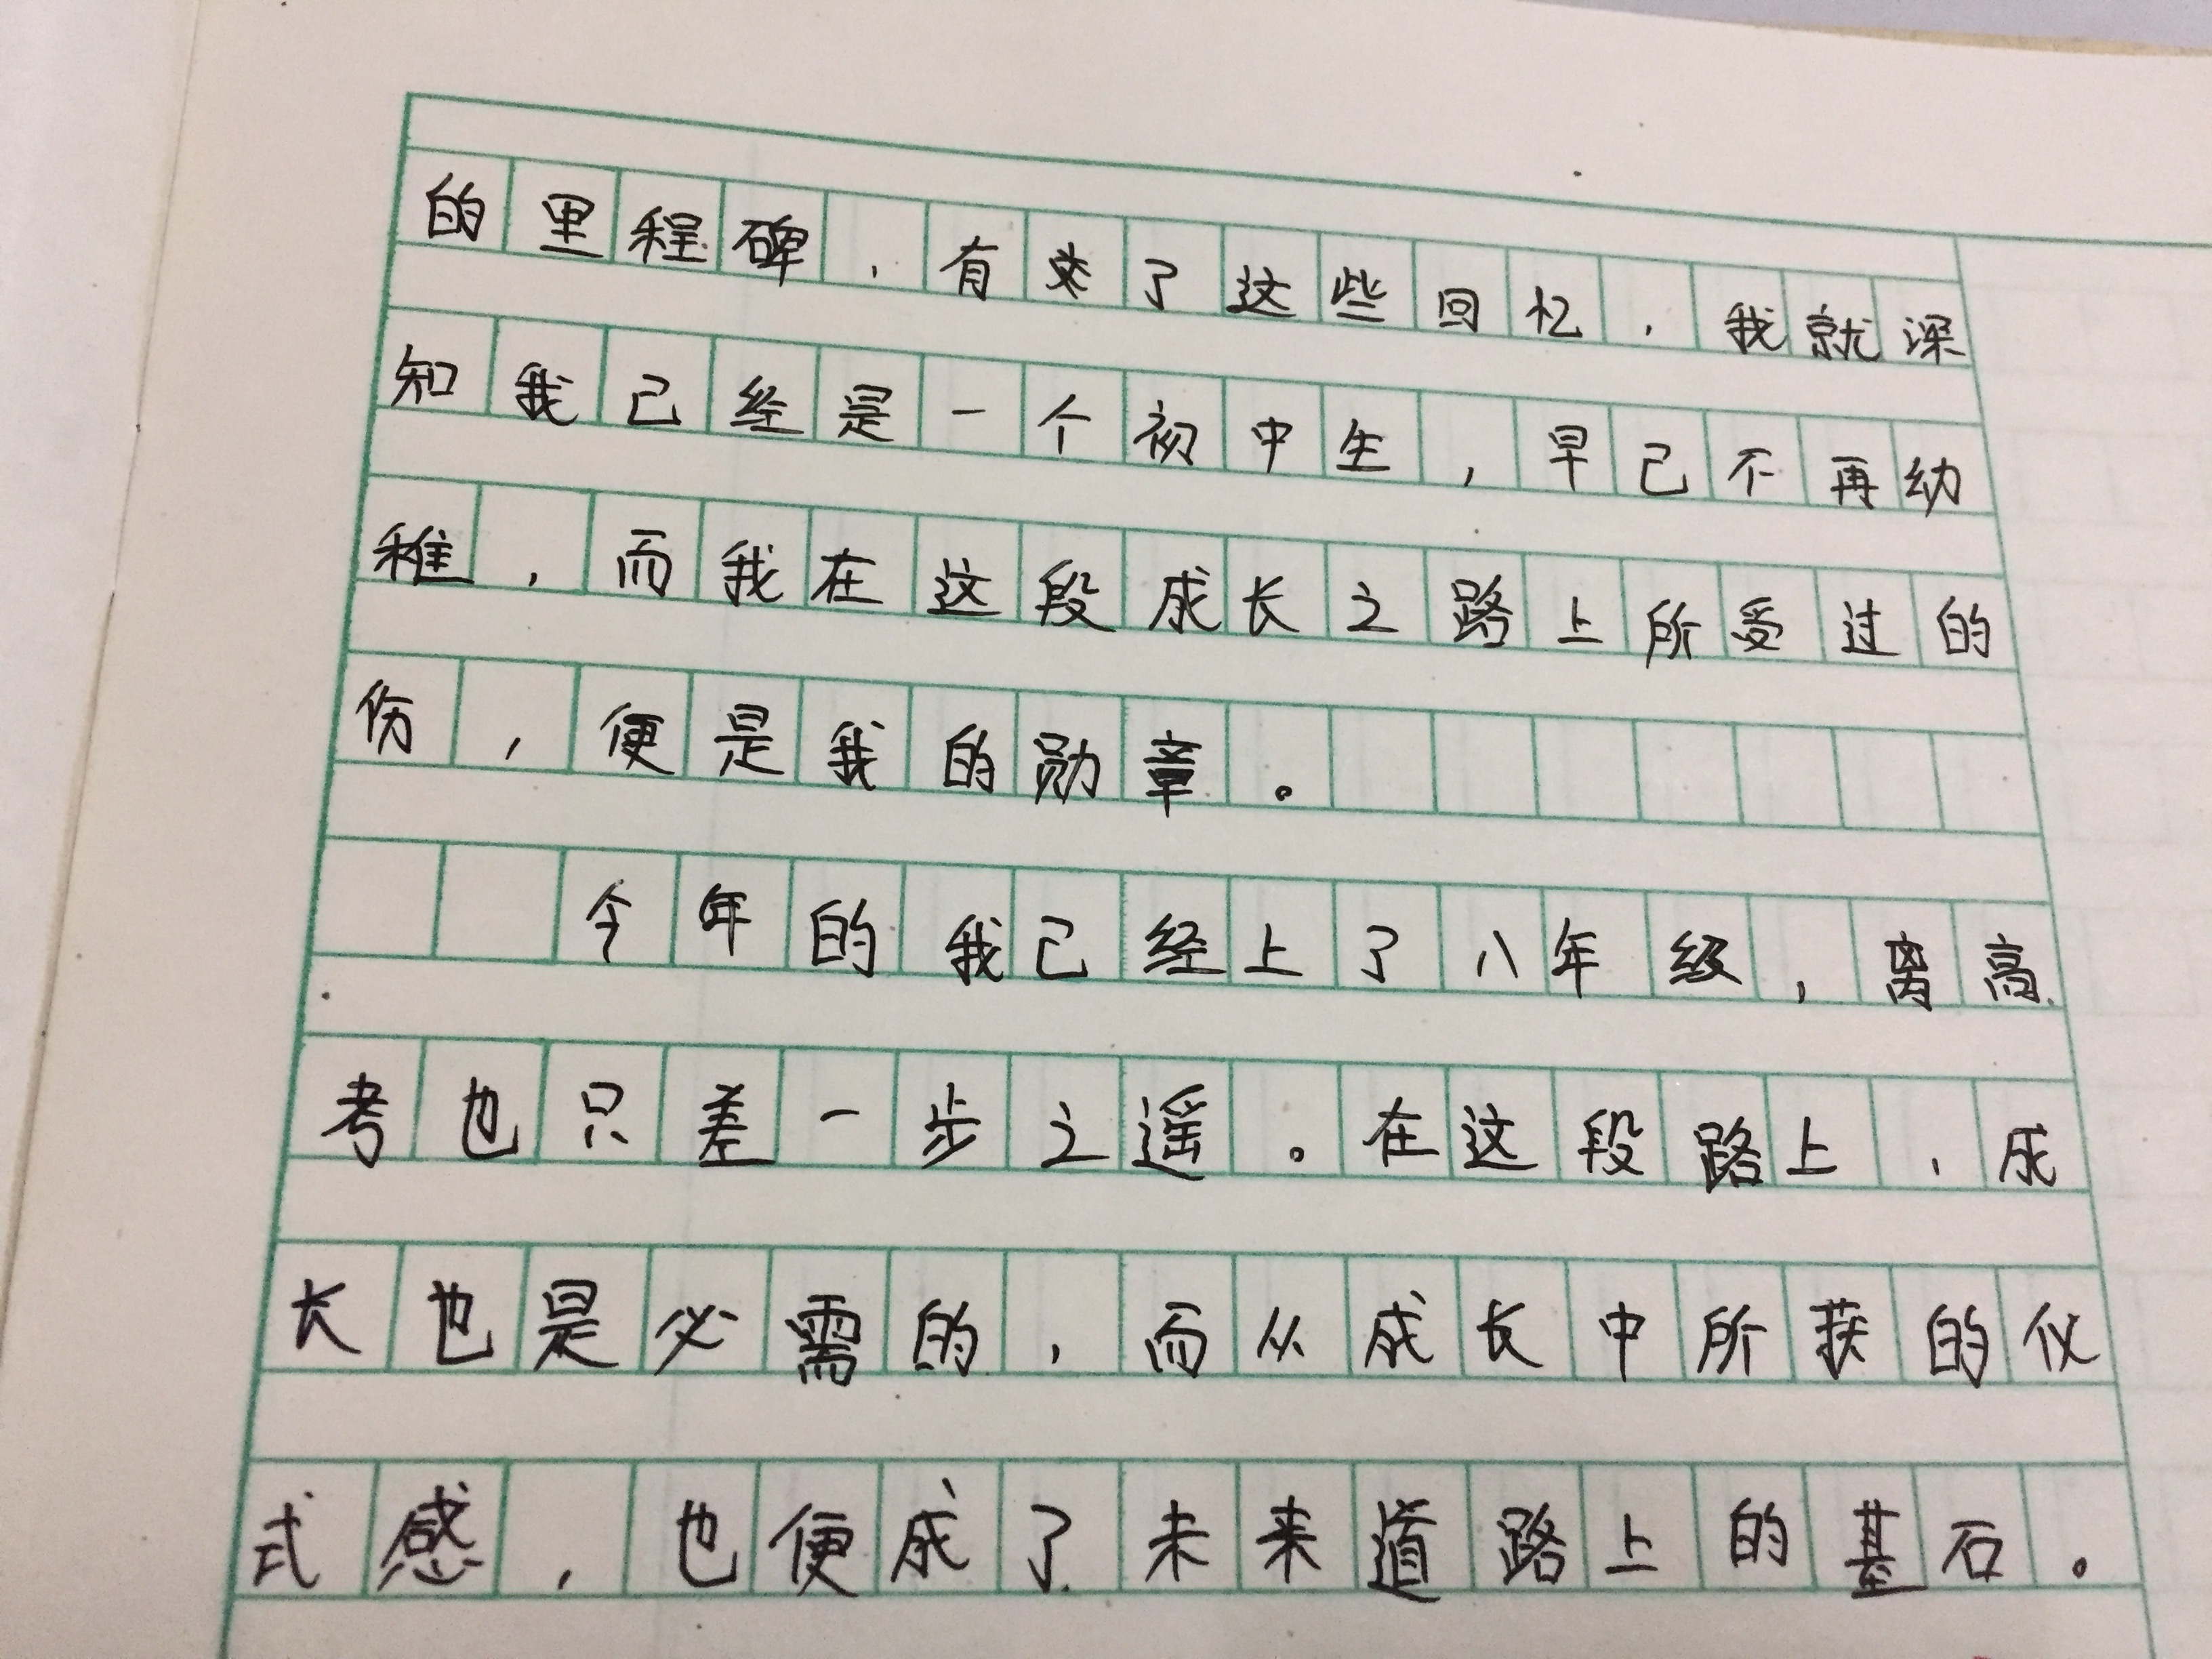 的里程碑，有了这些回忆，我就深
知我已经是一个初中生，早已不再幼
稚，而我在这段成长之路上所受过的
伤，便是我的勋章。
今年的我已经上了八年级，离高
考也只差一步之遥。在这段路上，成
长也是必需的，而从成长中所获的仪
式感，也便成了未来道路上的基石。